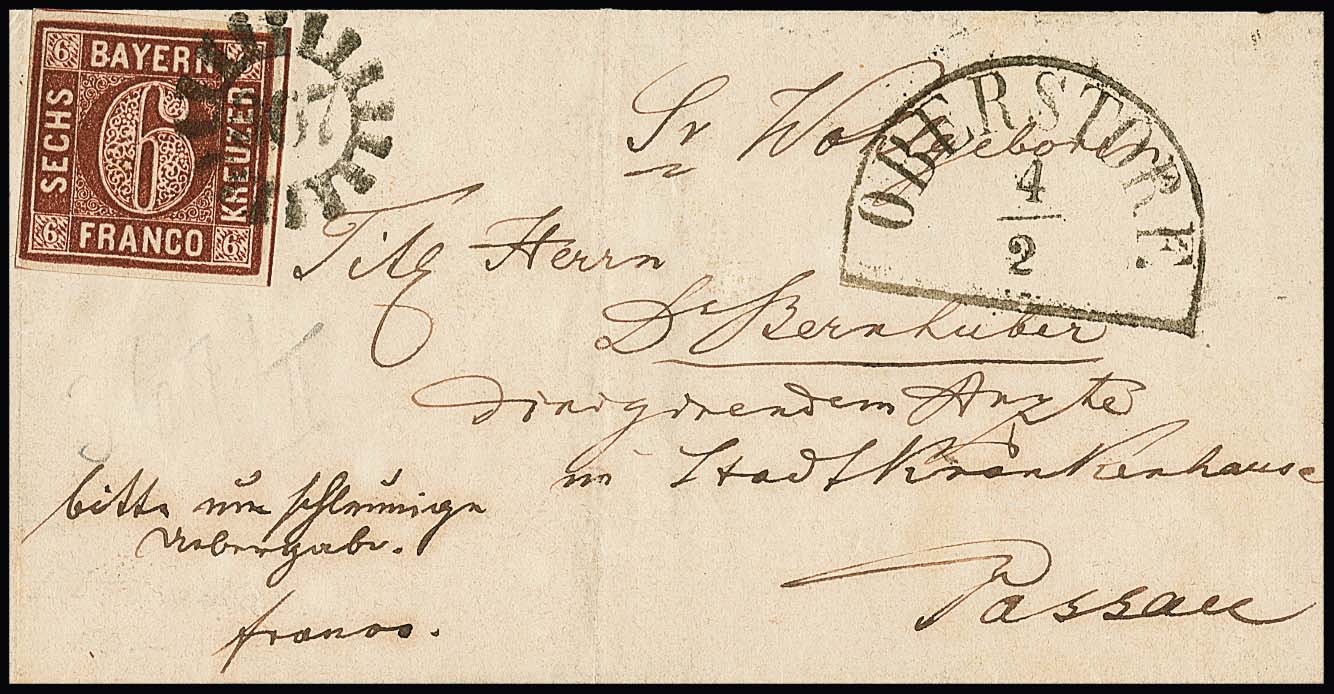 6 BAYERN 6
SECHS
6
KREUZER
6 FRANCO 6
OBERSTORF.
4
2
Sr Wohlgeboren
Titl Herrn
Dr Bernhuber
dirigirendem Arzte
im Stadtkrankenhause
Passau
bitte um schleunige
Uebergabe.
franco.